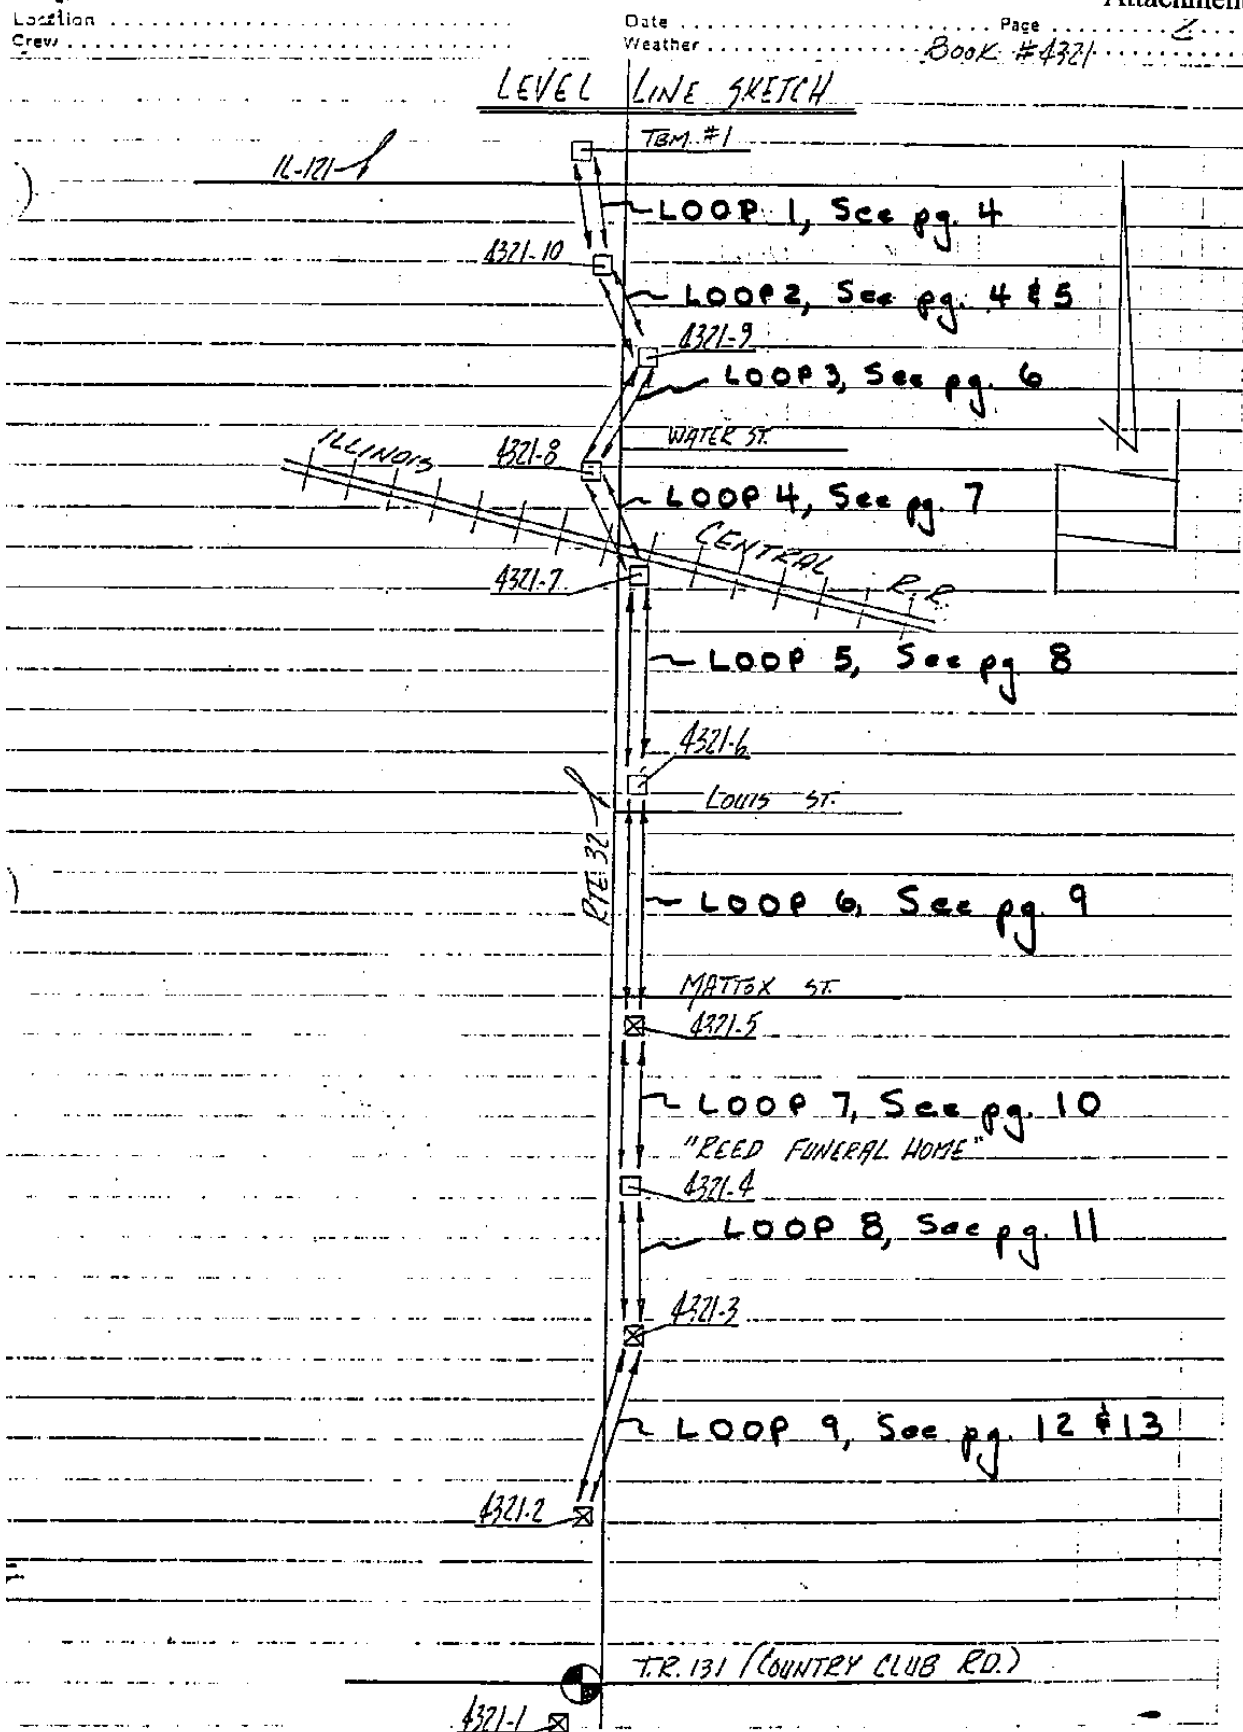 Attachment
Location
Date Page 2
Crew
Weather Book #4321
LEVEL LINE SKETCH
TBM #1
IL-121
LOOP 1, See pg. 4
4321-10
LOOP 2, See pg. 4 & 5
4321-9
LOOP 3, See pg. 6
WATER ST.
ILLINOIS
4321-8
LOOP 4, See pg. 7
CENTRAL
4321-7
R.R.
LOOP 5, See pg 8
4321-6
LOUIS ST.
RTE 32
LOOP 6, See pg. 9
MATTOX ST.
4321-5
LOOP 7, See pg. 10
"REED FUNERAL HOME"
4321-4
LOOP 8, See pg. 11
4321-3
LOOP 9, See pg. 12 & 13
4321-2
T.R. 131 (COUNTRY CLUB RD.)
4321-1